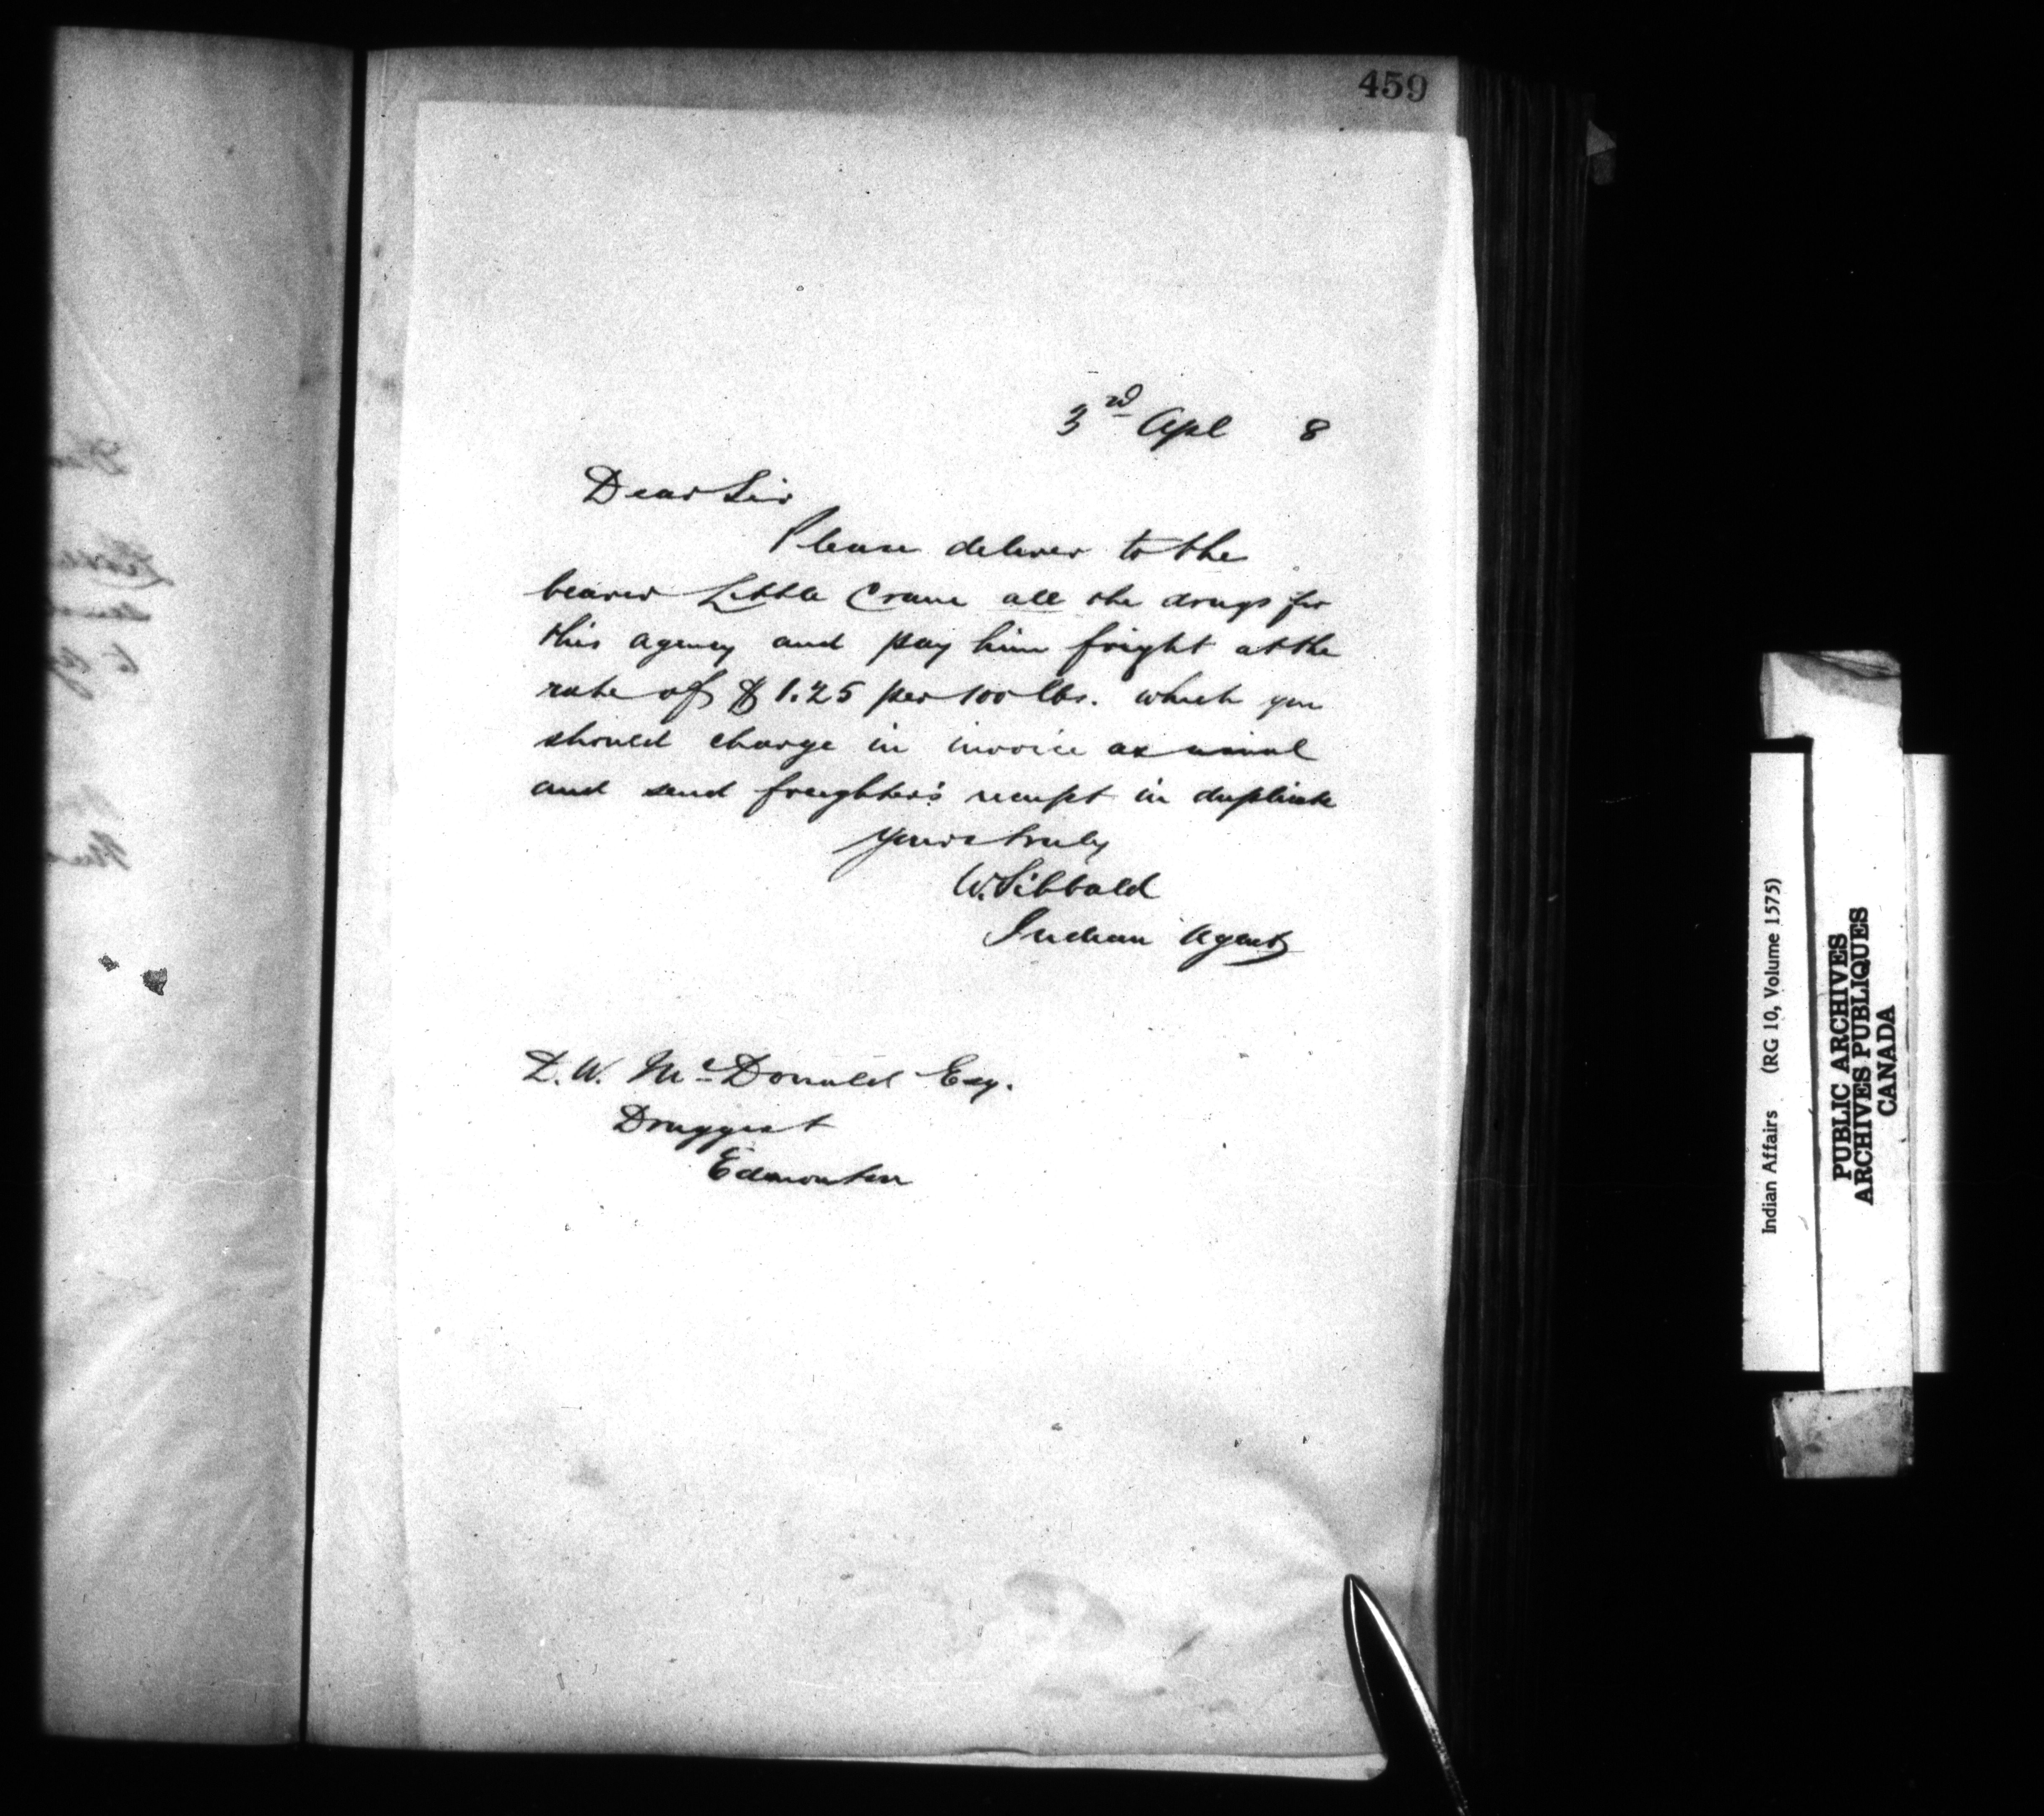 459
3rd Apl 8
Dear Sir
Please deliver to the
bearer Little Crane all the drugs for
this agency and pay him frieght at the
rate of $1.25 per 100 lbs. which you
should charge in invoice as usual
and send freighter's receipt in duplicate
Yours truly
W. Sibbald
Indian Agent
D. W. McDonald Esq.
Druggist
Edmonton
Indian Affairs (RG 10, Volume 1575)
PUBLIC ARCHIVES
ARCHIVES PUBLIQUES
CANADA